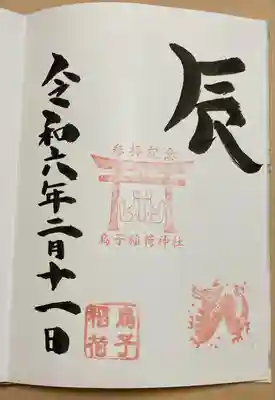 辰
参拝記念
烏子稲荷神社
烏子
稲荷
令和六年二月十一日